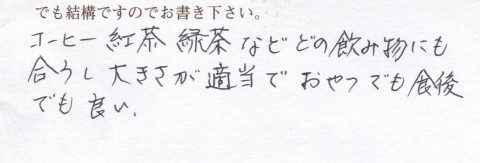 でも結構ですのでお書き下さい。
コーヒー 紅茶 緑茶 などどの飲み物にも
合うし 大きさが適当で おやつでも食後
でも良い。